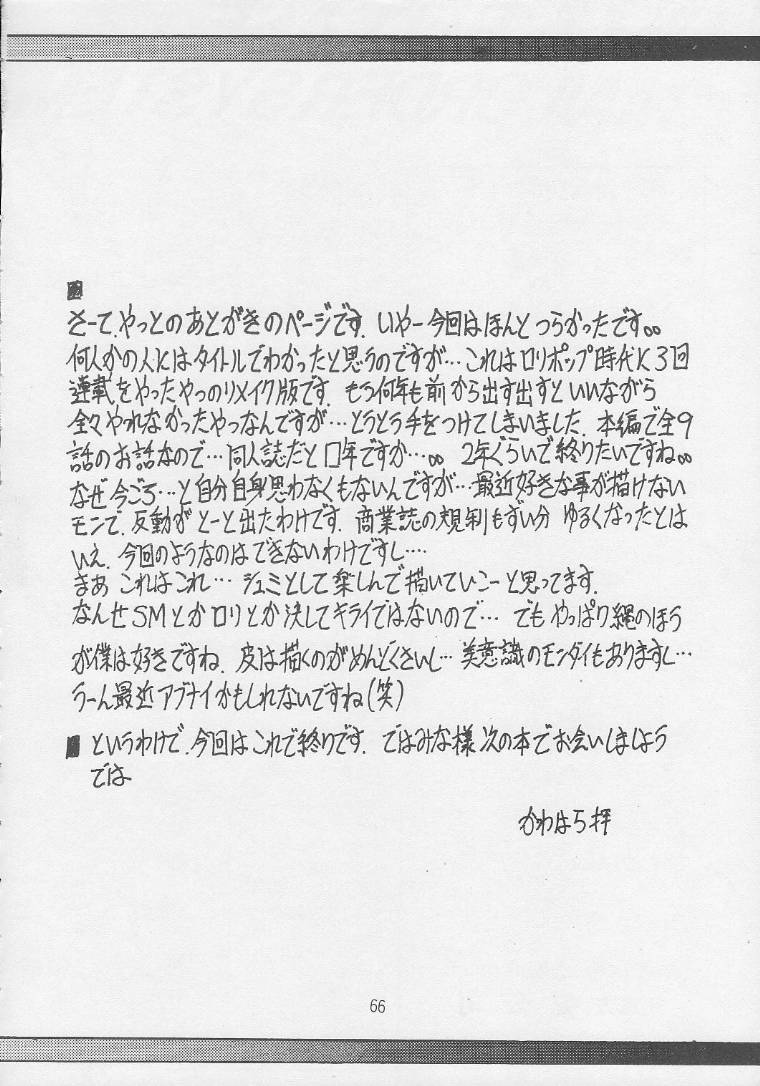 さーて、やっとのあとがきのページです。いやー今回はほんとつらかったです。。
何人かの人にはタイトルでわかったと思うのですが…これはロリポップ時代に3回
連載をやったやつのリメイク版です。もう何年も前から出す出すといいながら
全々やれなかったやつなんですが…とうとう手をつけてしまいました。本編で全9
話のお話なので…同人誌だと 年ですか…。。 2年ぐらいで終りたいですね。。
なぜ今ごろ…と自分自身思わなくもないんですが…最近好きな事が描けない
モンで、反動がどーと出たわけです。商業誌の規制もずい分ゆるくなったとは
いえ、今回のようなのはできないわけですし….
まあ これはこれ… シュミとして楽しんで描いていこーと思ってます。
なんせSMとかロリとか決してキライではないので… でもやっぱり縄のほう
が僕は好きですね、皮は描くのがめんどくさいし… 美意識のモンダイもありますし…
うーん最近アブナイかもしれないですね(笑)
というわけで、今回はこれで終りです。ではみな様次の本でお会いしましょう
では
かわはら拝
66